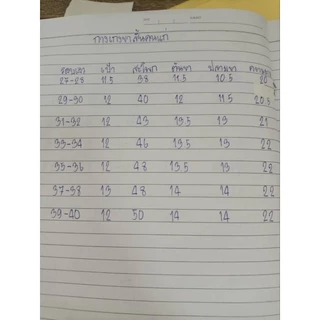 รอบเอว เป้า สะโพก ต้นขา ปลายขา
27-28 11.5 38 11.5 10.5 20
29-30 12 40 12 11.5 20.5
31-32 12 43 13.5 13 21
33-34 12 46 13.5 13 22
35-36 12 48 13.5 13 22
37-38 13 48 14 14 22
39-40 12 50 14 14 22